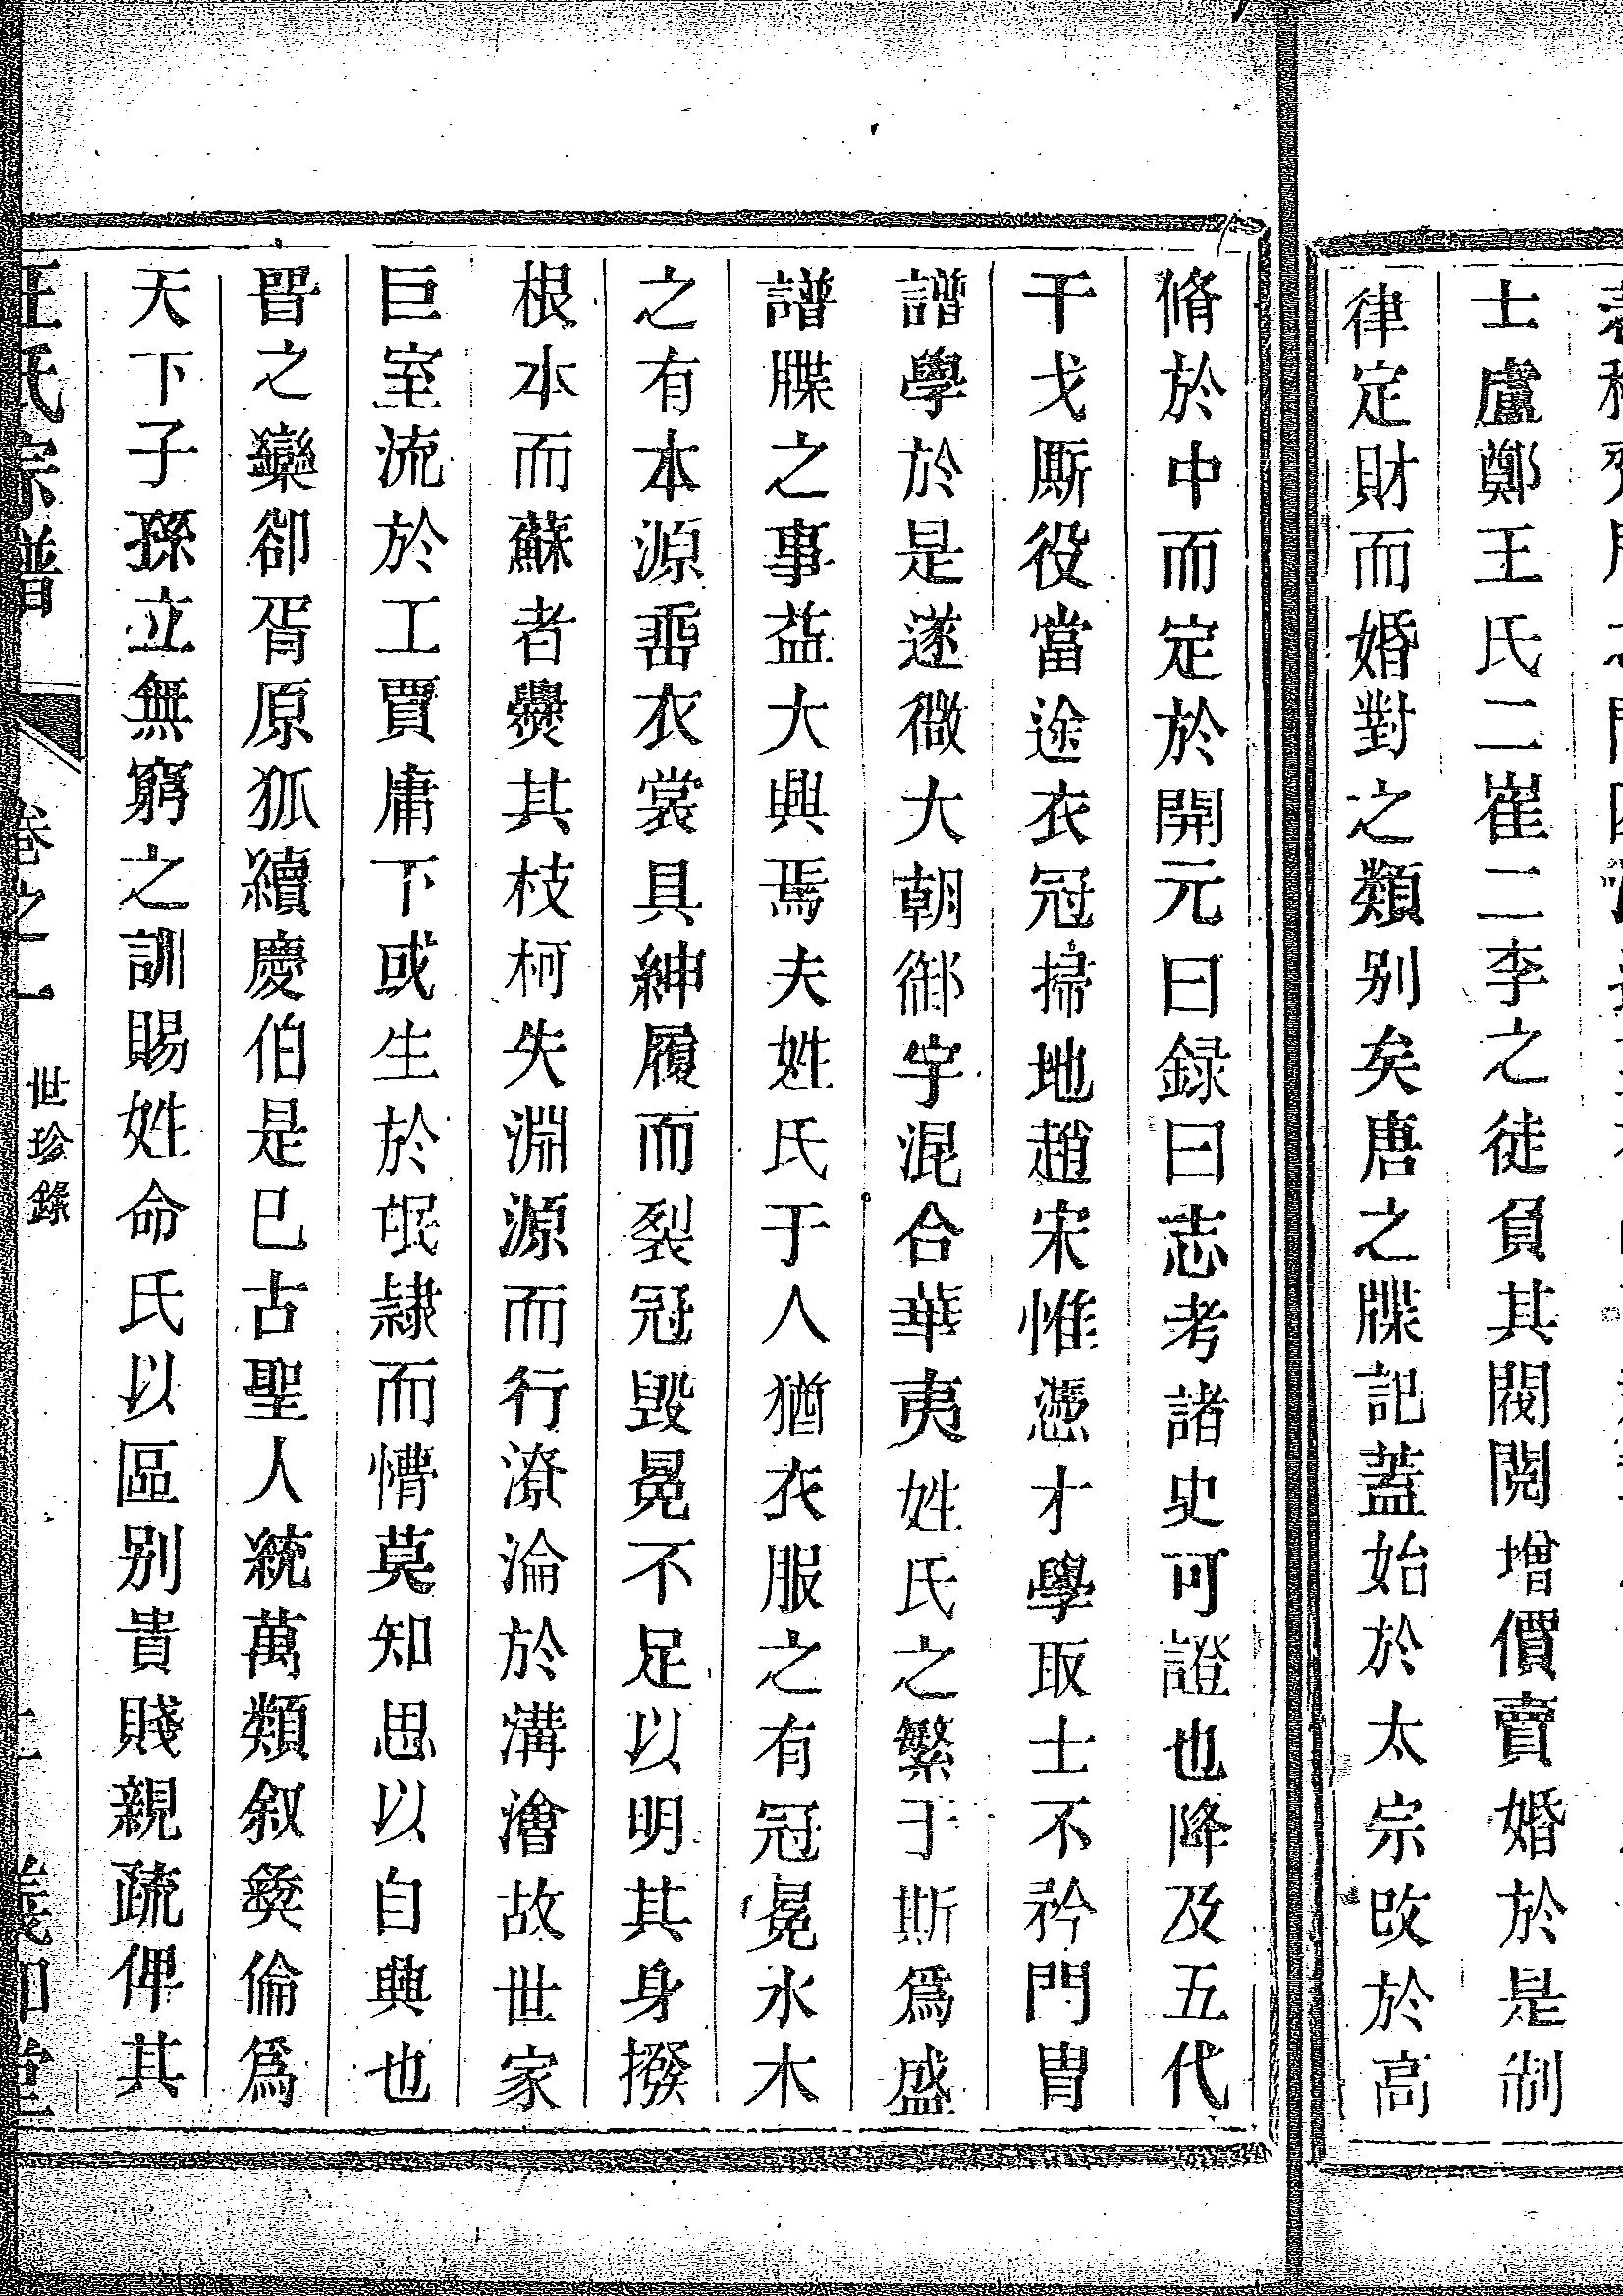 士盧鄭王氏二崔二李之徒負其閥閱增價賣婚於是制
律定財而婚對之類別矣唐之牒記蓋始於太宗改於高
脩於中而定於開元曰錄曰志考諸史可證也降及五代
干戈厮役當途衣冠掃地趙宋惟憑才學取士不矜門胄
譜學於是遂微大朝御宇混合華夷姓氏之繁于斯爲盛
譜牒之事益大興焉夫姓氏于人猶衣服之有冠冕水木
之有本源垂衣裳具紳履而裂冠毁冕不足以明其身撥
根本而蘇者爨其枝柯失淵源而行潦淪於溝澮故世家
巨室流於工賈庸下或生於氓隷而懵莫知思以自典也
晋之欒郤胥原狐續慶伯是已古聖人統萬類叙彝倫爲
天下子孫立無窮之訓賜姓命氏以區别貴賤親疏俾其
王氏宗譜 卷之一 世珍錄